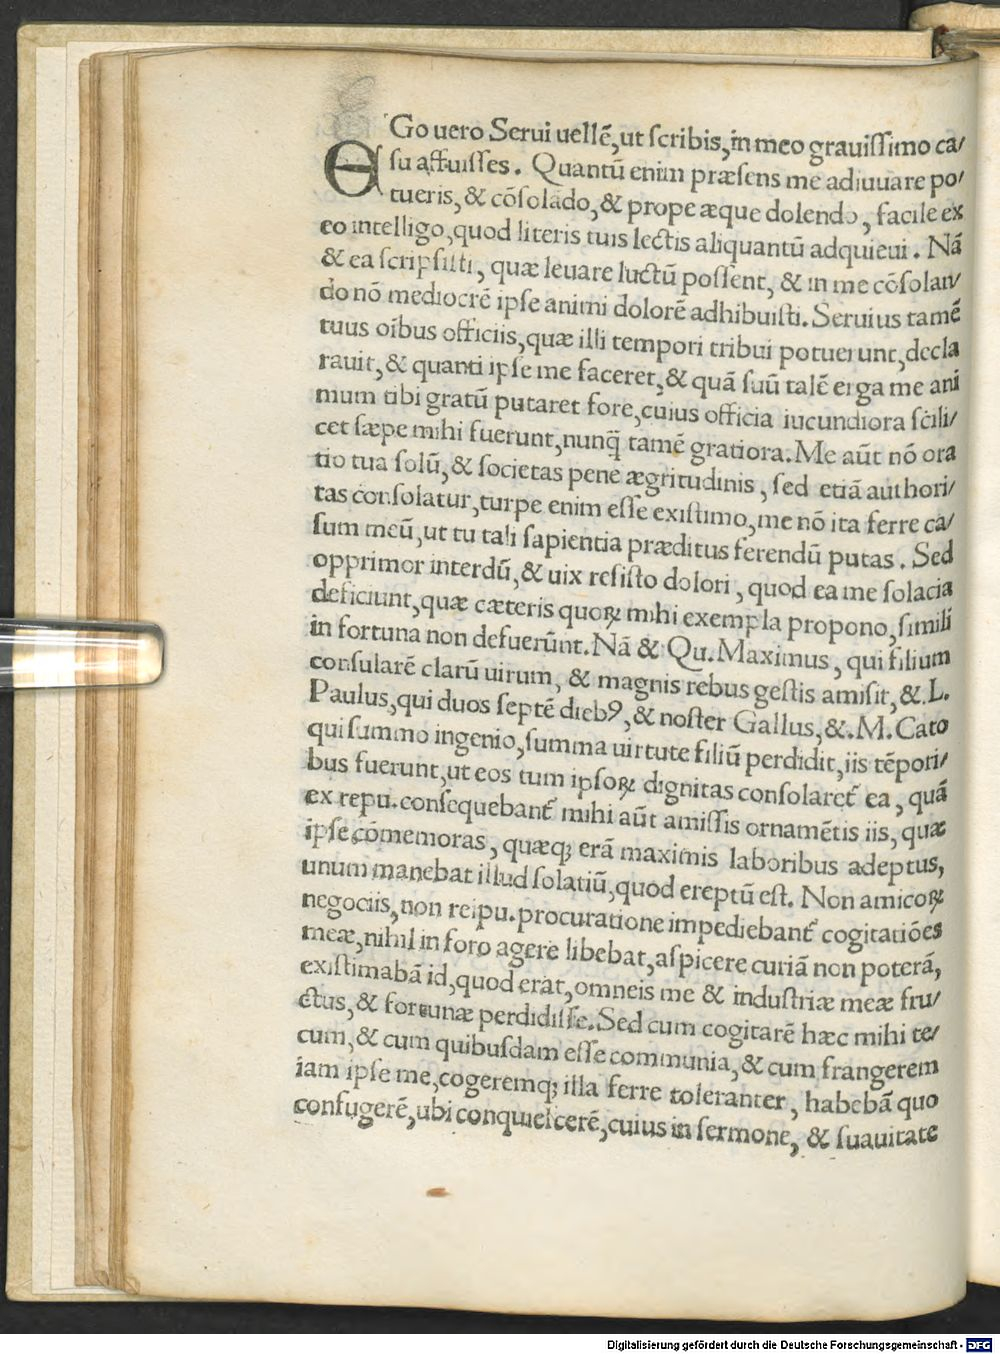 EGo uero Serui uellē, ut scribis, in meo grauissimo ca/
su affuisses. Quantū enim præsens me adiuuare po/
tueris, & cōsolādo, & prope æque dolendo, facile ex
eo intelligo, quod literis tuis lectis aliquantū adquieui. Nā
& ea scripsisti, quæ leuare luctū possent, & in me cōsolan/
do nō mediocrē ipse animi dolorē adhibuisti. Seruius tamē
tuus oībus officiis, quæ illi tempori tribui potuerunt, decla
rauit, & quanti ipse me faceret, & quā suū talē erga me ani
mum tibi gratū putaret fore, cuius officia iucundiora scili/
cet sæpe mihi fuerunt, nunq̄ tamē gratiora. Me aūt nō ora
tio tua solū, & societas pene ægritudinis, sed etiā authori/
tas consolatur, turpe enim esse existimo, me nō ita ferre ca/
sum meū, ut tu tali sapientia præditus ferendū putas. Sed
opprimor interdū, & uix resisto dolori, quod ea me solacia
deficiunt, quæ cæteris quoꝝ mihi exempla propono, simili
in fortuna non defuerūnt. Nā & Qu. Maximus, qui filium
consularē clarū uirum, & magnis rebus gestis amisit, & L.
Paulus, qui duos septē dieb9, & noster Gallus, & M. Cato
qui summo ingenio, summa uirtute filiū perdidit, iis tēpori/
bus fuerunt, ut eos tum ipsoꝝ dignitas consolaret᷑ ea, quā
ex repu. consequebant᷑ mihi aūt amissis ornamētis iis, quæ
ipse cōmemoras, quæq; erā maximis laboribus adeptus,
unum manebat illud solatiū, quod ereptū est. Non amicoꝝ
negociis, non reipu. procuratione impediebant᷑ cogitatiōes
meæ, nihil in foro agere libebat, aspicere curiā non poterā,
existimabā id, quod erat, omneis me & industriæ meæ fru/
ctus, & fortunæ perdidisse. Sed cum cogitarē hæc mihi te/
cum, & cum quibusdam esse communia, & cum frangerem
iam ipse me, cogeremq; illa ferre toleranter, habebā quo
confugerē, ubi conquiescerē, cuius in sermone, & suauitate
Digitalisierung gefördert durch die Deutsche Forschungsgemeinschaft - DFG